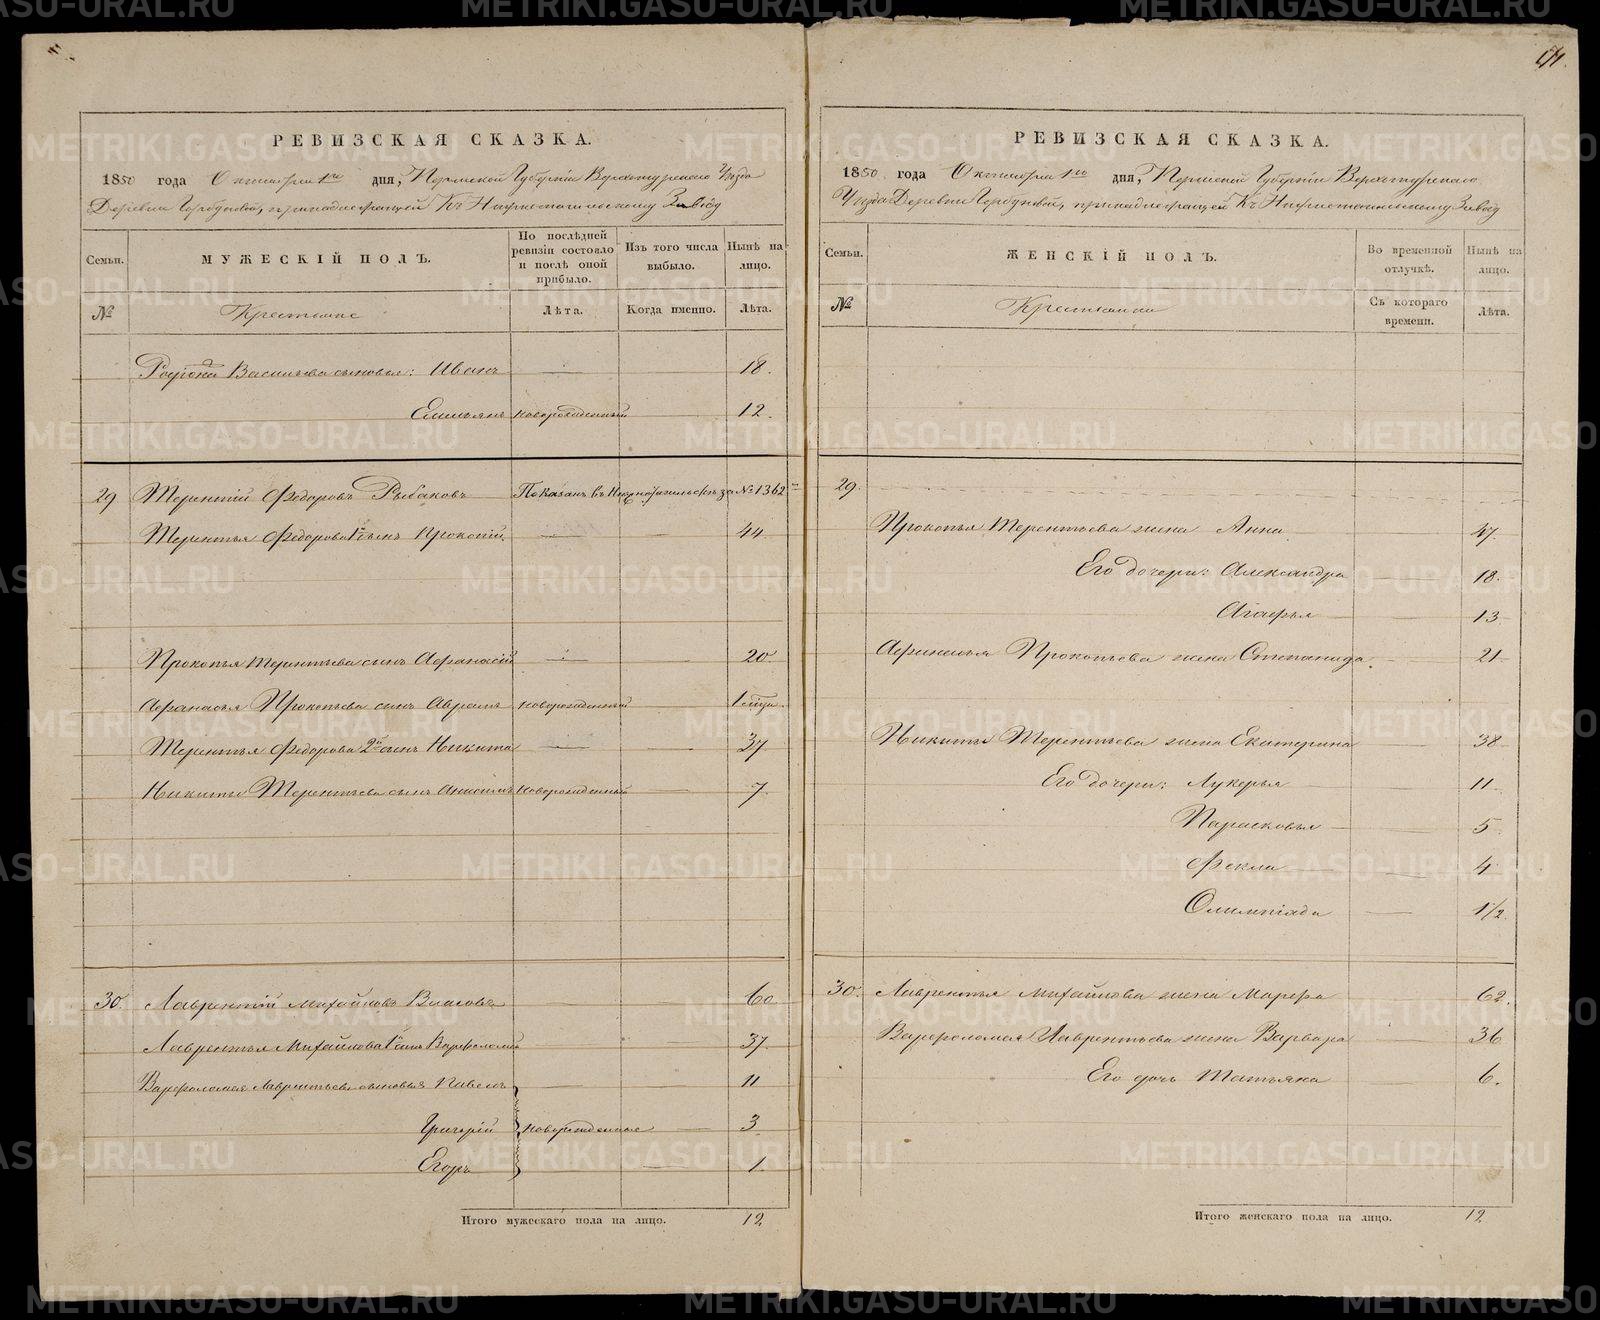 РЕВИЗСКАЯ СКАЗКА.
1850 года Октября 1го дня, Пермской Губерніи Верхотурскаго Уѣзда
Деревни Горбуновой, принадлежащей Къ Нижнетагильскому Заводу
Семьи.
МУЖЕСКІЙ ПОЛЪ.
По послѣдней ревизіи состояло и послѣ оной прибыло.
Изъ того числа выбыло.
Нынѣ на лицо.
№
Крестьяне
Лѣта.
Когда именно.
Лѣта.
Васильева сыновья: Иванъ 18.
Емельянъ новорожденный 12.
29 Терентій Федоровъ Рыбаковъ Показанъ въ за № 1362
Терентья Федорова 1й сынъ Прокопій. 44
Прокопья Терентьева сынъ Афанасій 20
Афанасья Прокопьева сынъ Аврамъ новорожденный 1 мѣся.
Терентья Федорова 2й сынъ Никита 37
Никиты Терентьева сынъ Анисимъ новорожденный 7.
30. Лаврентій Михайловъ Власовъ 60
Лаврентья Михайлова 1й сынъ Варфоломей 37.
Варфоломея Лаврентьева сыновья Павелъ 11
Григорій новорожденные 3
Егоръ 1.
Итого мужескаго пола на лицо. 12
РЕВИЗСКАЯ СКАЗКА.
1850 года Октября 1го дня, Пермской Губерніи Верхотурскаго
Уѣзда Деревни Горбуновой, принадлежащей Къ Нижнетагильскому Заводу
Семьи.
ЖЕНСКІЙ ПОЛЪ.
Во временной отлучкѣ.
Нынѣ на лицо.
№
Крестьянки
Съ котораго времени.
Лѣта.
29.
Прокопья Терентьева жена Анна 47.
Его дочери: Александра 18.
Агафья 13
Афанасья Прокопьева жена Степанида. 21
Никиты Терентьева жена Екатерина 38
Его дочери: Лукерья 11
Парасковья 5
Фекла 4
Олимпіада 1/2.
30. Лаврентья Михайлова жена Марфа 62.
Варфоломея Лаврентьева жена Варвара 36
Его дочь Татьяна 6.
Итого женскаго пола на лицо. 12
METRIKI.GASO-URAL.RU